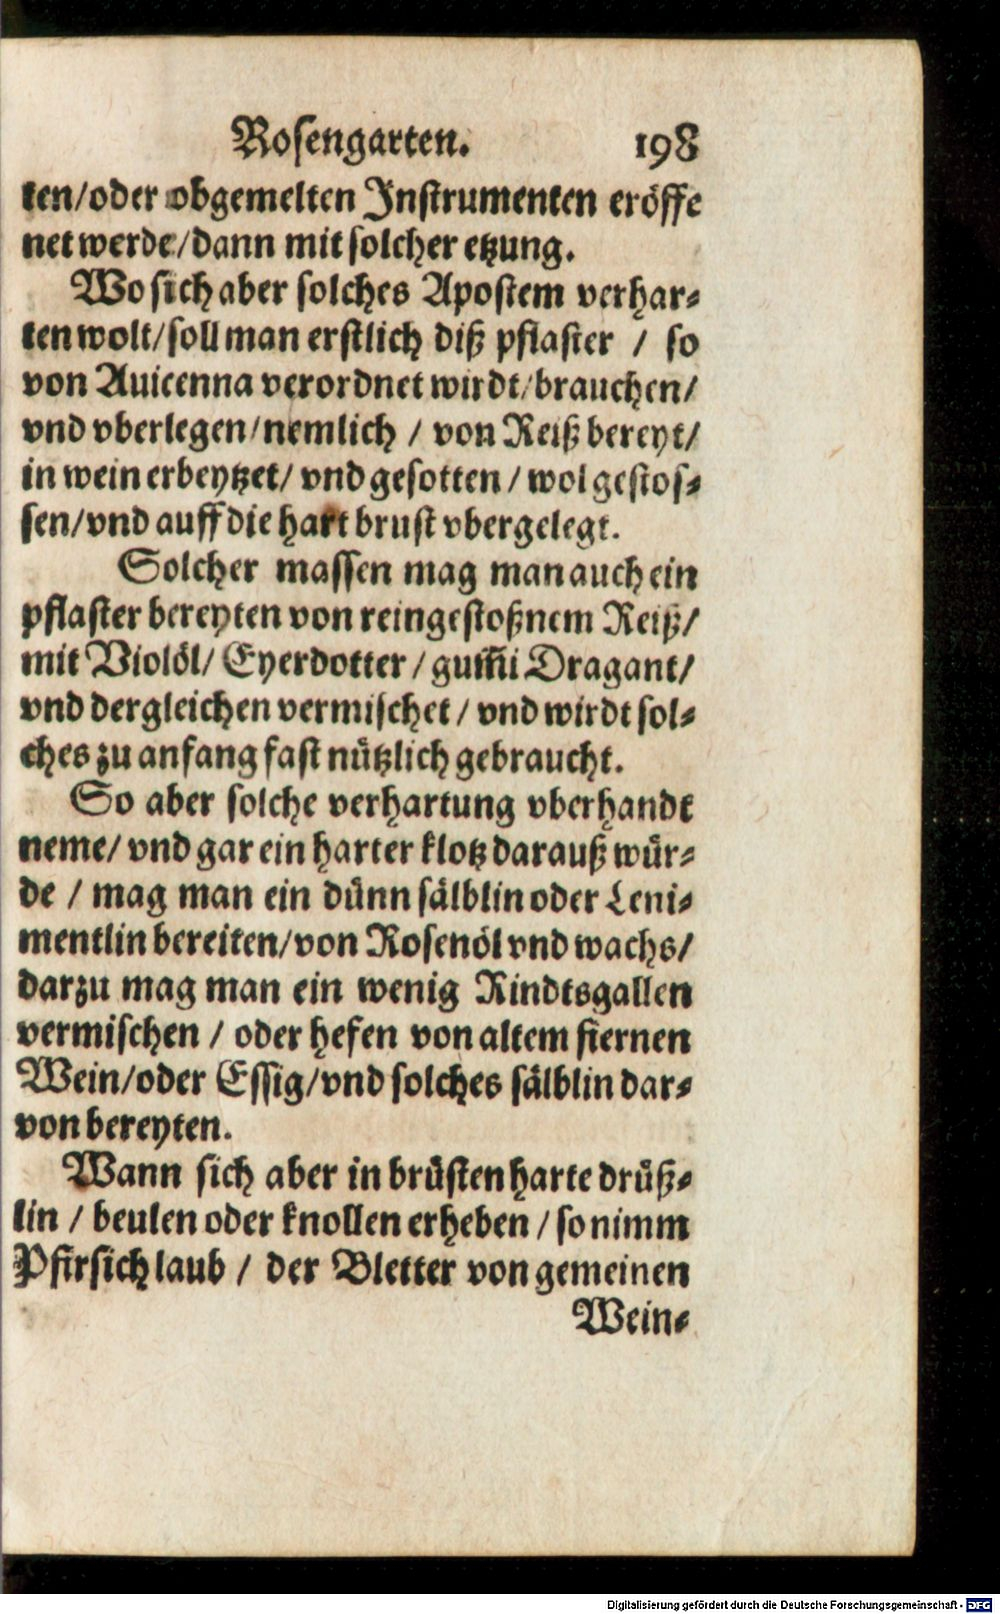 Rosengarten. 198
ten/oder obgemelten Instrumenten eröffe
net werde/dann mit solcher etzung.
Wo sich aber solches Apostem verhar-
ten wolt/soll man erstlich diß pflaster / so
von Auicenna verordnet wirdt/brauchen/
vnd vberlegen/nemlich / von Reiß bereyt/
in wein erbeytzet/ vnd gesotten / wol gestos-
sen/vnd auff die hart brust vbergelegt.
Solcher massen mag man auch ein
pflaster bereyten von reingestoßnem Reiß/
mit Violöl/ Eyerdotter / gum̃i Dragant/
vnd dergleichen vermischet / vnd wirdt sol-
ches zu anfang fast nützlich gebraucht.
So aber solche verhartung vberhandt
neme/ vnd gar ein harter klotz darauß wür-
de / mag man ein dünn sälblin oder Leni-
mentlin bereiten/von Rosenöl vnd wachs/
darzu mag man ein wenig Rindtsgallen
vermischen / oder hefen von altem fiernen
Wein/oder Essig/vnd solches sälblin dar-
von bereyten.
Wann sich aber in brüsten harte drüß-
lin / beulen oder knollen erheben / so nimm
Pfirsichlaub / der Bletter von gemeinen
Wein-
Digitalisierung gefördert durch die Deutsche Forschungsgemeinschaft - DFG